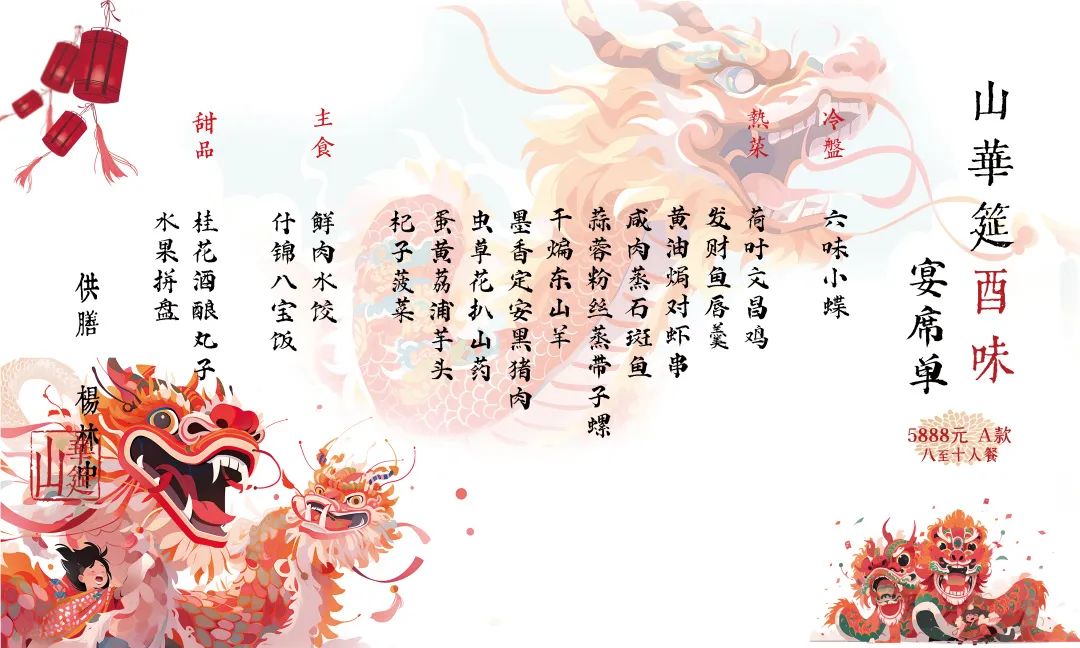 山華筵酉味
宴席单
5888元 A款
八至十人餐
冷盤
六味小蝶
熱菜
荷叶文昌鸡
发财鱼唇羹
黄油焗对虾串
咸肉蒸石斑鱼
蒜蓉粉丝蒸带子螺
干煸东山羊
墨香定安黑猪肉
虫草花扒山药
蛋黄荔浦芋头
杞子菠菜
主食
鲜肉水饺
什锦八宝饭
甜品
桂花酒酿丸子
水果拼盘
供膳 楊林中
山華筵